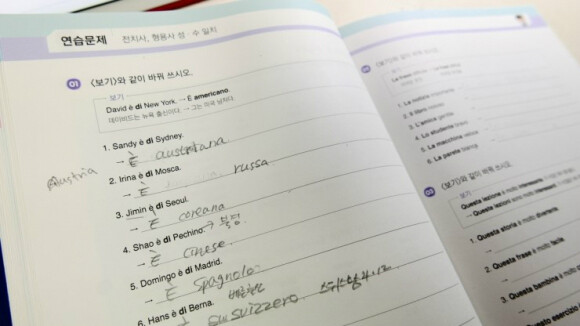 연습문제 전치사, 형용사 성·수 일치
01 <보기>와 같이 바꿔 쓰시오.
보기
David è di New York. → È americano.
데이비드는 뉴욕 출신이다. → 그는 미국 남자다.
1. Sandy è di Sydney.
→ È australiana
Austria
2. Irina è di Mosca.
→ È russa
3. Jimin è di Seoul.
→ È coreana
4. Shao è di Pechino.
→ È cinese.
5. Domingo è di Madrid.
→ È Spagnolo.
6. Hans è di Berna.
→ È suizzero
<보기>와 같이 바꿔 쓰시오.
보기
1. La notizia
2. Il libro
3. L'amica gentile
4. Lo studente bravo
5. La macchina veloce
6. La parete bianca
03 <보기>와 같이 바꿔 쓰시오.
보기
Questa lezione è molto interessante.
Queste lezioni sono molto interessanti.
1. Questa storia è molto divertente.
→
2. Questa frase è molto facile.
→
3. Questa bambina è molto
→
4. Questo esercizio